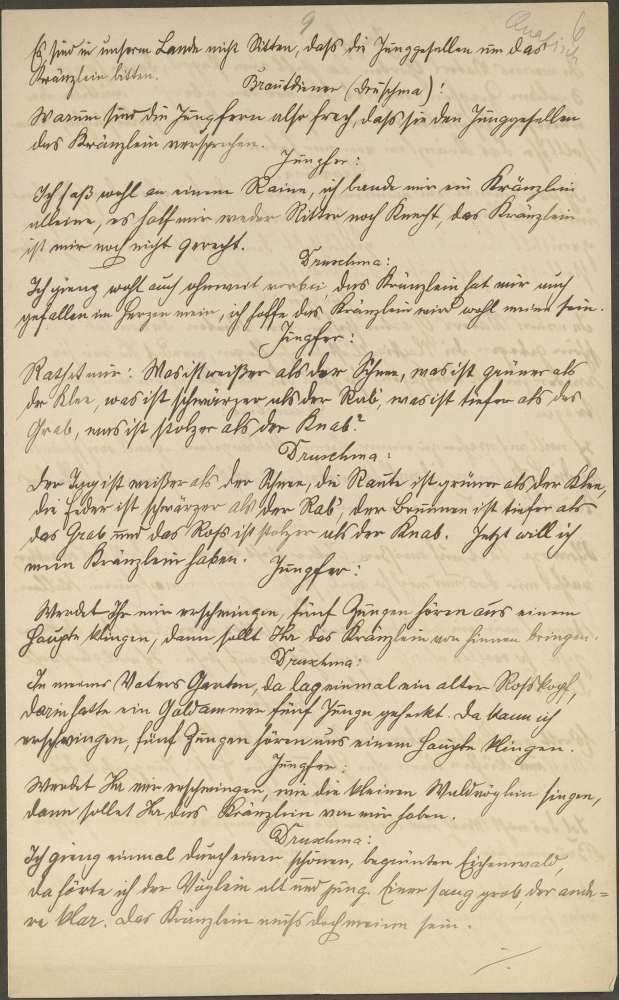 9
6
Es sind in unserm Lande nicht Sitten, daß die Junggesellen um das
Kränzlein bitten.
Brautdiener (Druschma):
Warum sind die Jungfern also frech, daß sie den Junggesellen
das Kränzlein versprechen.
Jungfer:
Ich saß wohl an einem Raine, ich bande mir ein Kränzlein
alleine, es half mir weder Ritter noch Knecht, das Kränzlein
ist mir noch nicht gerecht.
Druschma:
Ich gieng wohl auch ohnweit vorbei, das Kränzlein hat mir auch
gefallen im Herzen mein, ich hoffe das Kränzlein wird wohl meine sein.
Jungfer:
Rathet mir: Was ist weißer als der Schnee, was ist grüner als
der Klee, was ist schwärzer als der Rab', was ist tiefer als das
Grab, was ist stolzer als der Knab?
Druschma:
Der Tag ist weißer als der Schnee, die Raute ist grüner als der Klee,
die Feder ist schwärzer als der Rab', der Brunnen ist tiefer als
das Grab und das Roß ist stolzer als der Knab. Jetzt will ich
mein Kränzlein haben.
Jungfer:
Werdet Ihr mir erschwingen, fünf Zungen hören aus einem
Haupte klingen, dann sollt Ihr das Kränzlein von hinnen bringen.
Druschma:
In meines Vaters Garten, da lag einmal ein alter Roßkopf,
darin hatte ein Goldammer fünf Junge geheckt. Da kann ich
erschwingen, fünf Zungen hören aus einem Haupte klingen.
Jungfer:
Werdet Ihr mir erschwingen, wie die kleinen Waldvöglein singen,
dann sollet Ihr das Kränzlein von mir haben.
Druschma:
Ich gieng einmal durch einen schönen, begrünten Eichenwald,
da hörte ich der Vöglein alt und jung. Einer sang grob, der ande=
re klar. Das Kränzlein muß doch meine sein.